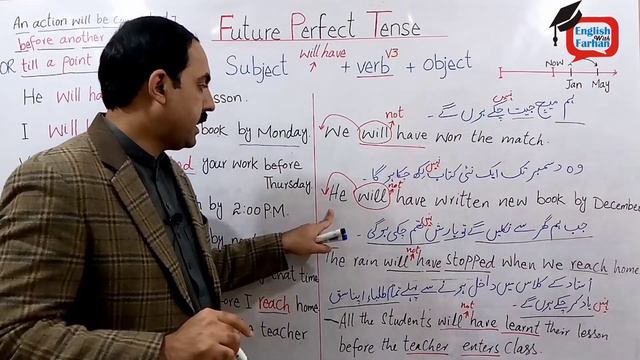 An action will be
before another
OR till a point
Future Perfect Tense
will have
Subject ↑ + verb V3 + Object
English
With
Farhan
NOW
Jan May
He will lesson.
I Will book by Monday.
your work before
Thursday
by 2:00 P.M.
that time
I reach home
teacher
ہم میچ جیت چکے نہیں ہوں گے ۔
not
We will have won the match.
وہ دسمبر تک ایک نئی کتاب نہیں لکھ چکا ہو گا ۔
not
He will have written new book by December
جب ہم گھر سے نکلیں گے تو بارش نہیں تھم چکی ہو گی ۔
not
The rain will have stopped when we reach home
استاد کے کلاس میں داخل ہونے سے پہلے تمام طلباء اپنا سبق
نہیں
یاد کر چکے ہوں گے ۔
not
All the students will have learnt their lesson
before the teacher enters class.